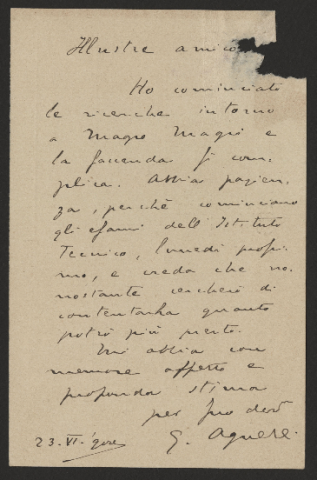 Illustre amico,
Ho cominciato
le ricerche intorno
a Magre Magré e
la faccenda si com-
plica. Abbia pazien-
za, perché cominciano
gli esami dell'Istituto
Tecnico, lunedì prossi-
mo, e creda che no-
nostante cercherò di
contentarla quanto
potrò più presto.
Mi abbia con
memore affetto e
profonda stima
per suo dev
G. Agnelli
23. VI.